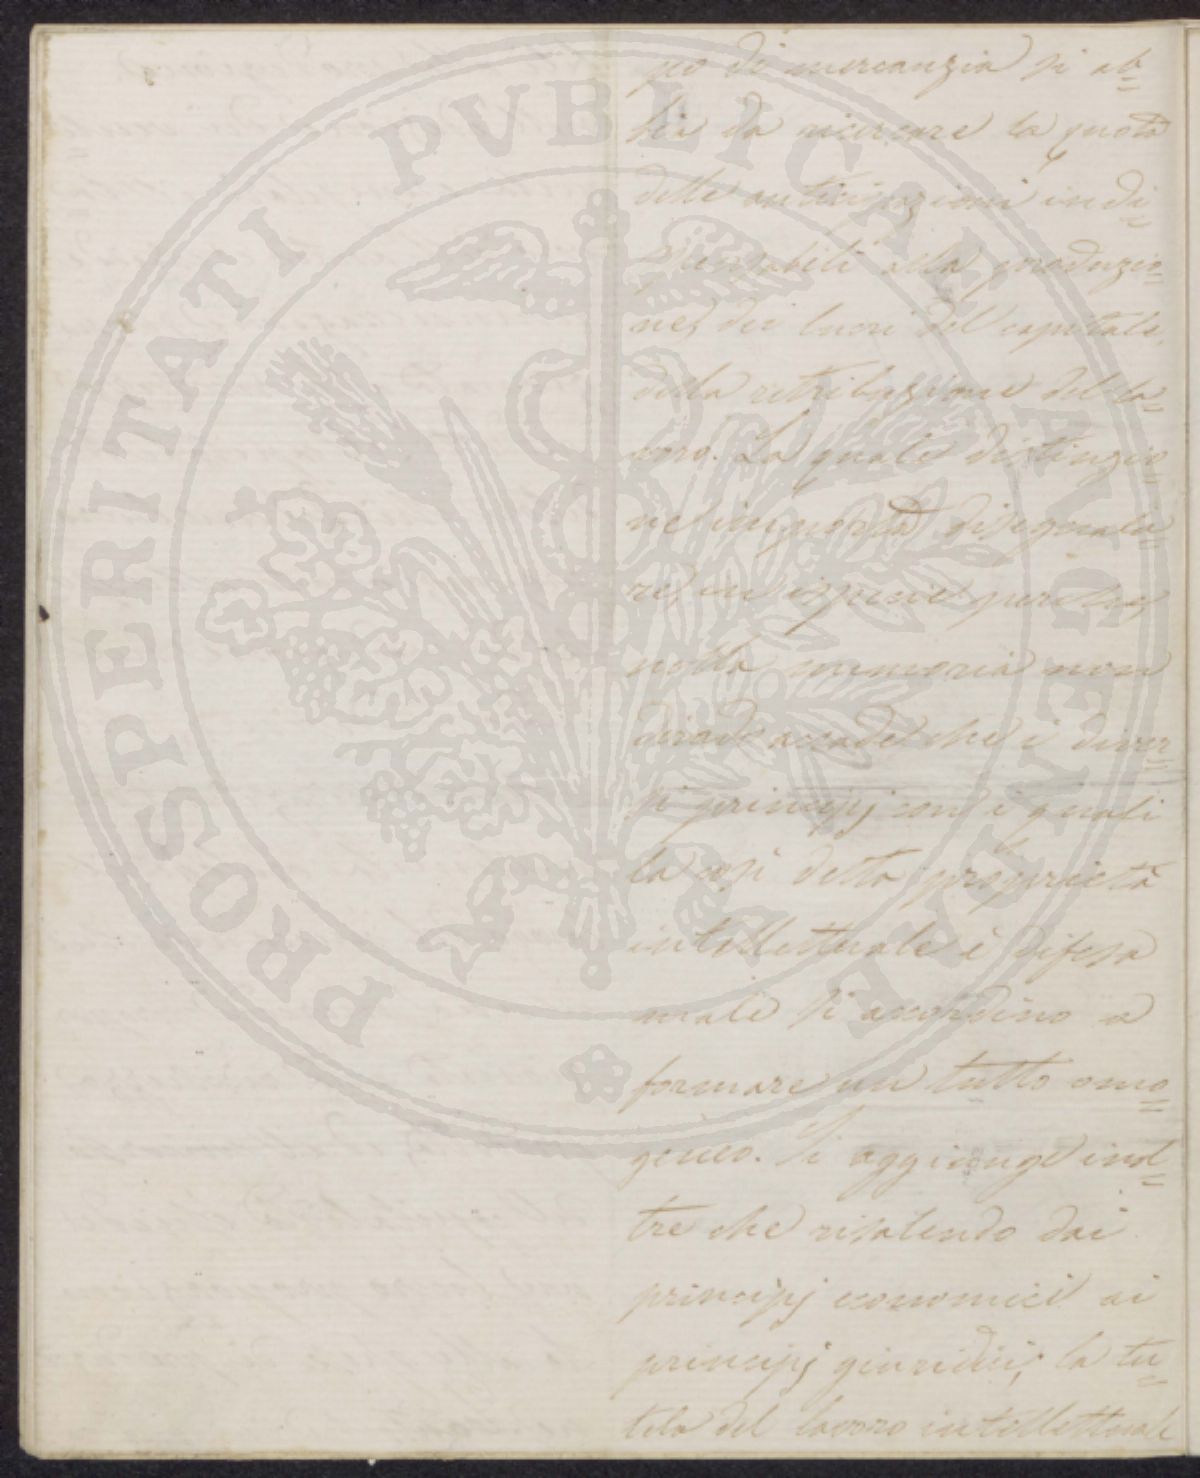 PROSPERITATI PVBLICAE AVGENDAE
po di mercanzia si ab=
bia da ricercare la quota
delle anticipazioni indi=
spensabili alla produzio=
ne, dei lucri del capitale,
della retribuzione del la=
voro. La quale distinzio=
ne importa segnala
re in ispecie perchè,
nella memoria non
dirado accade che i diver=
si principj con i quali
la così detta proprietà
intellettuale è difesa
male si accordino a
formare un tutto omo=
geneo. Si aggiunge inol=
tre che risalendo dai
principj economici ai
principj giuridici, la tu=
tela del lavoro intellettuale